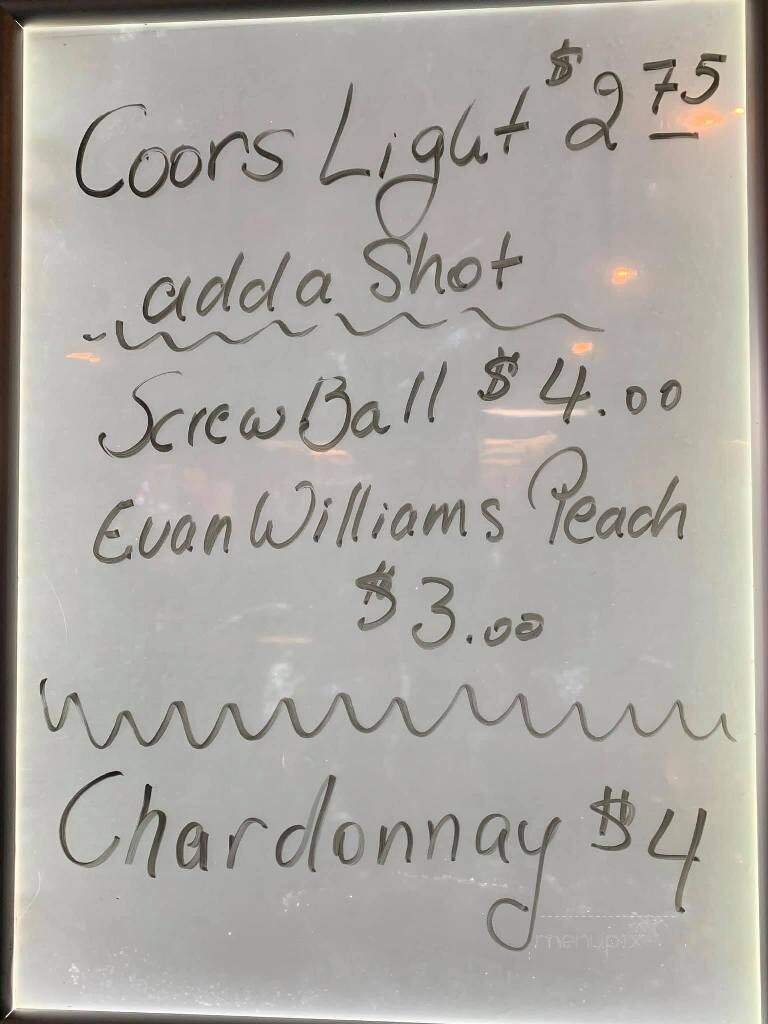 Coors Light $2 75
add a Shot
Screw Ball $4.00
Evan Williams Peach
$3.00
Chardonnay $4
menupix